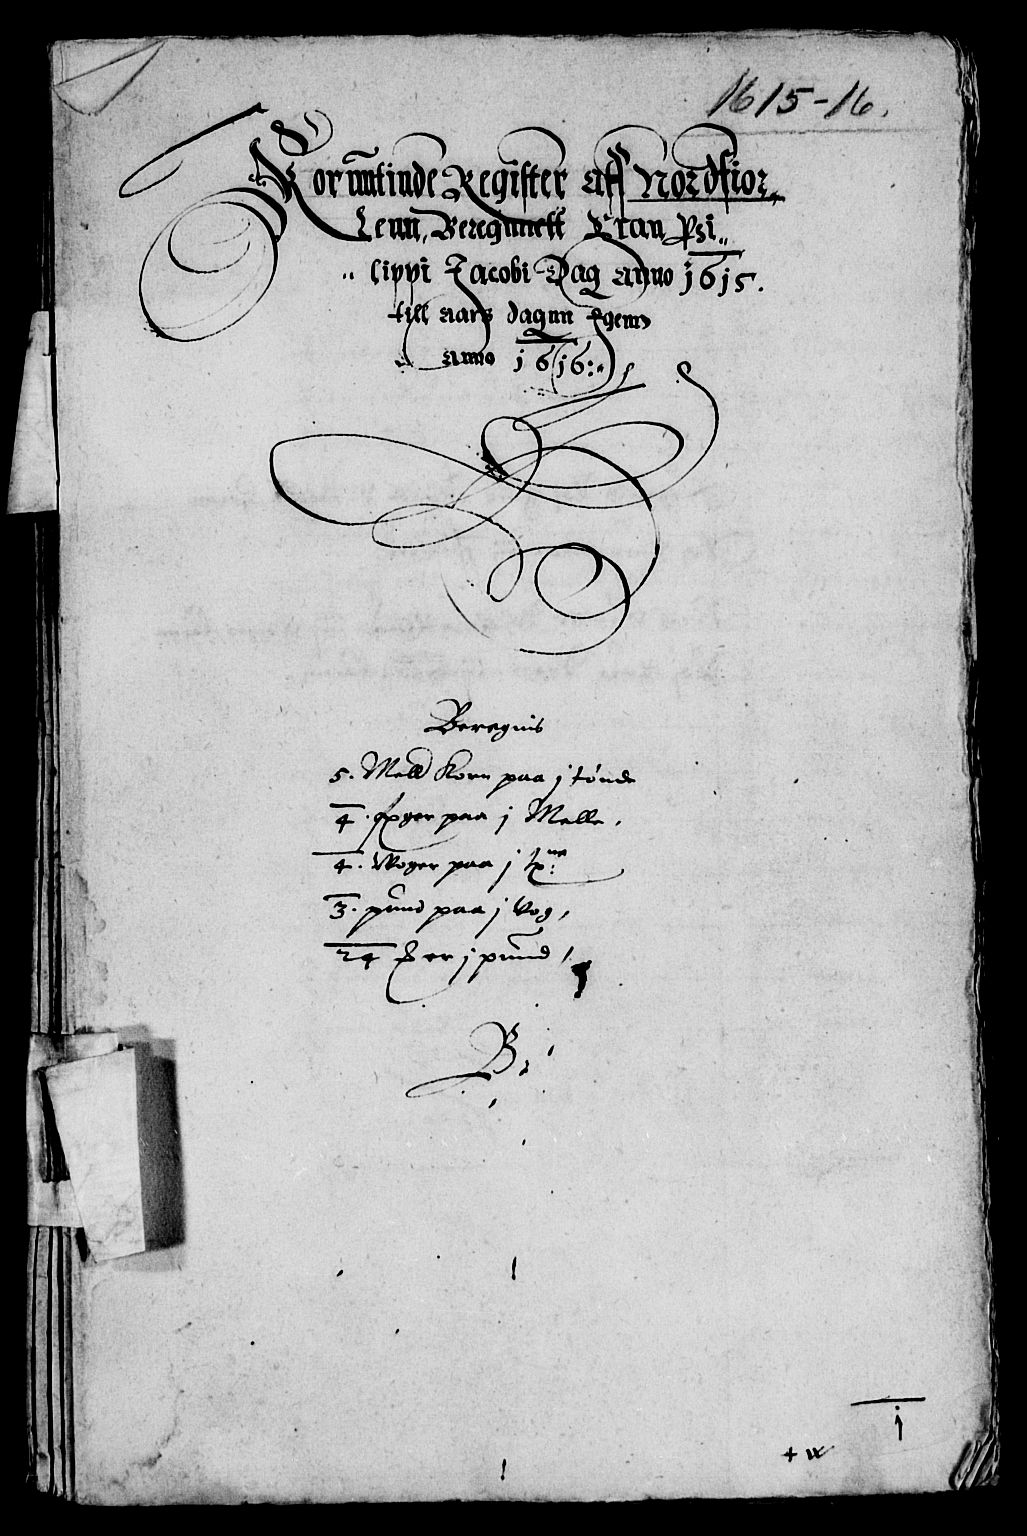 1615-16.
Kornntinde Register aff Nordfior
Lenn, Beregnnett Fran Psi„
„ lippi Jacobi Dag anno j6j5.
till aars dagnn Igenn
anno j6j6:
Beregnis
5. Mell Korn paa j tønde
4. spger paa j Melle.
4. Woger paa j
3. pund paa j Vog,
24 er j pund,
j